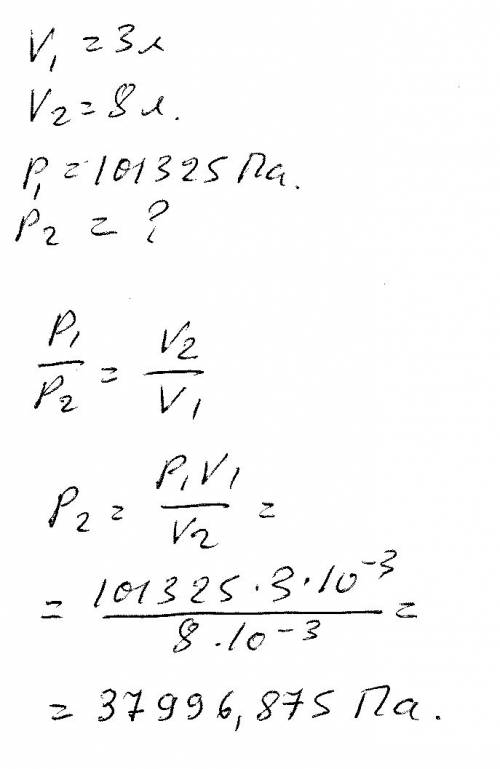 V₁ = 3 л
V₂ = 8 л.
P₁ = 101325 Па.
P₂ = ?
P₁/P₂ = V₂/V₁
P₂ = P₁V₁/V₂ =
= 101325 · 3 · 10⁻³/8 · 10⁻³ =
= 37996,875 Па.